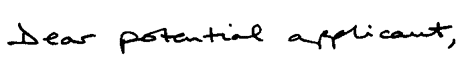 Dear potential applicant,